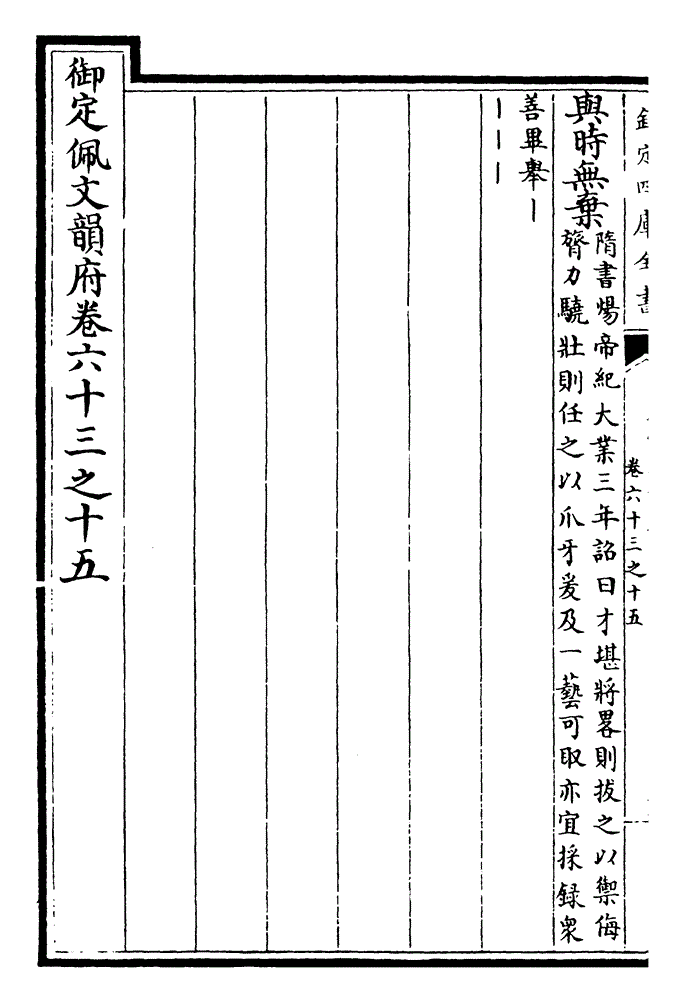 欽定四庫全書
卷六十三之十五
與時無棄
隋書煬帝紀大業三年詔曰才堪將畧則拔之以禦侮
膂力驍壯則任之以爪牙爰及一藝可取亦宜採録衆
善畢舉丨
丨丨丨
御定佩文韻府卷六十三之十五